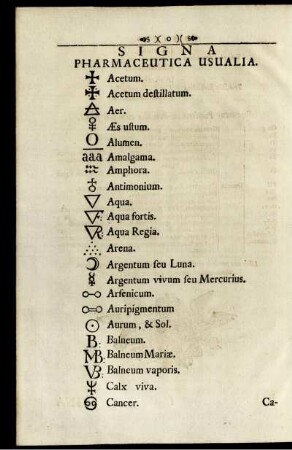 )( o )(
SIGNA
PHARMACEUTICA USUALIA.
Acetum.
Acetum deſtillatum.
Aer.
Æs uſtum.
Alumen.
aaa Amalgama.
Amphora.
Antimonium.
Aqua.
Aqua fortis.
Aqua Regia.
Arena.
Argentum ſeu Luna.
Argentum vivum ſeu Mercurius.
Arſenicum.
Auripigmentum
Aurum, & Sol.
B: Balneum.
MB: Balneum Mariæ.
VB: Balneum vaporis.
Calx viva.
Cancer.
Ca-